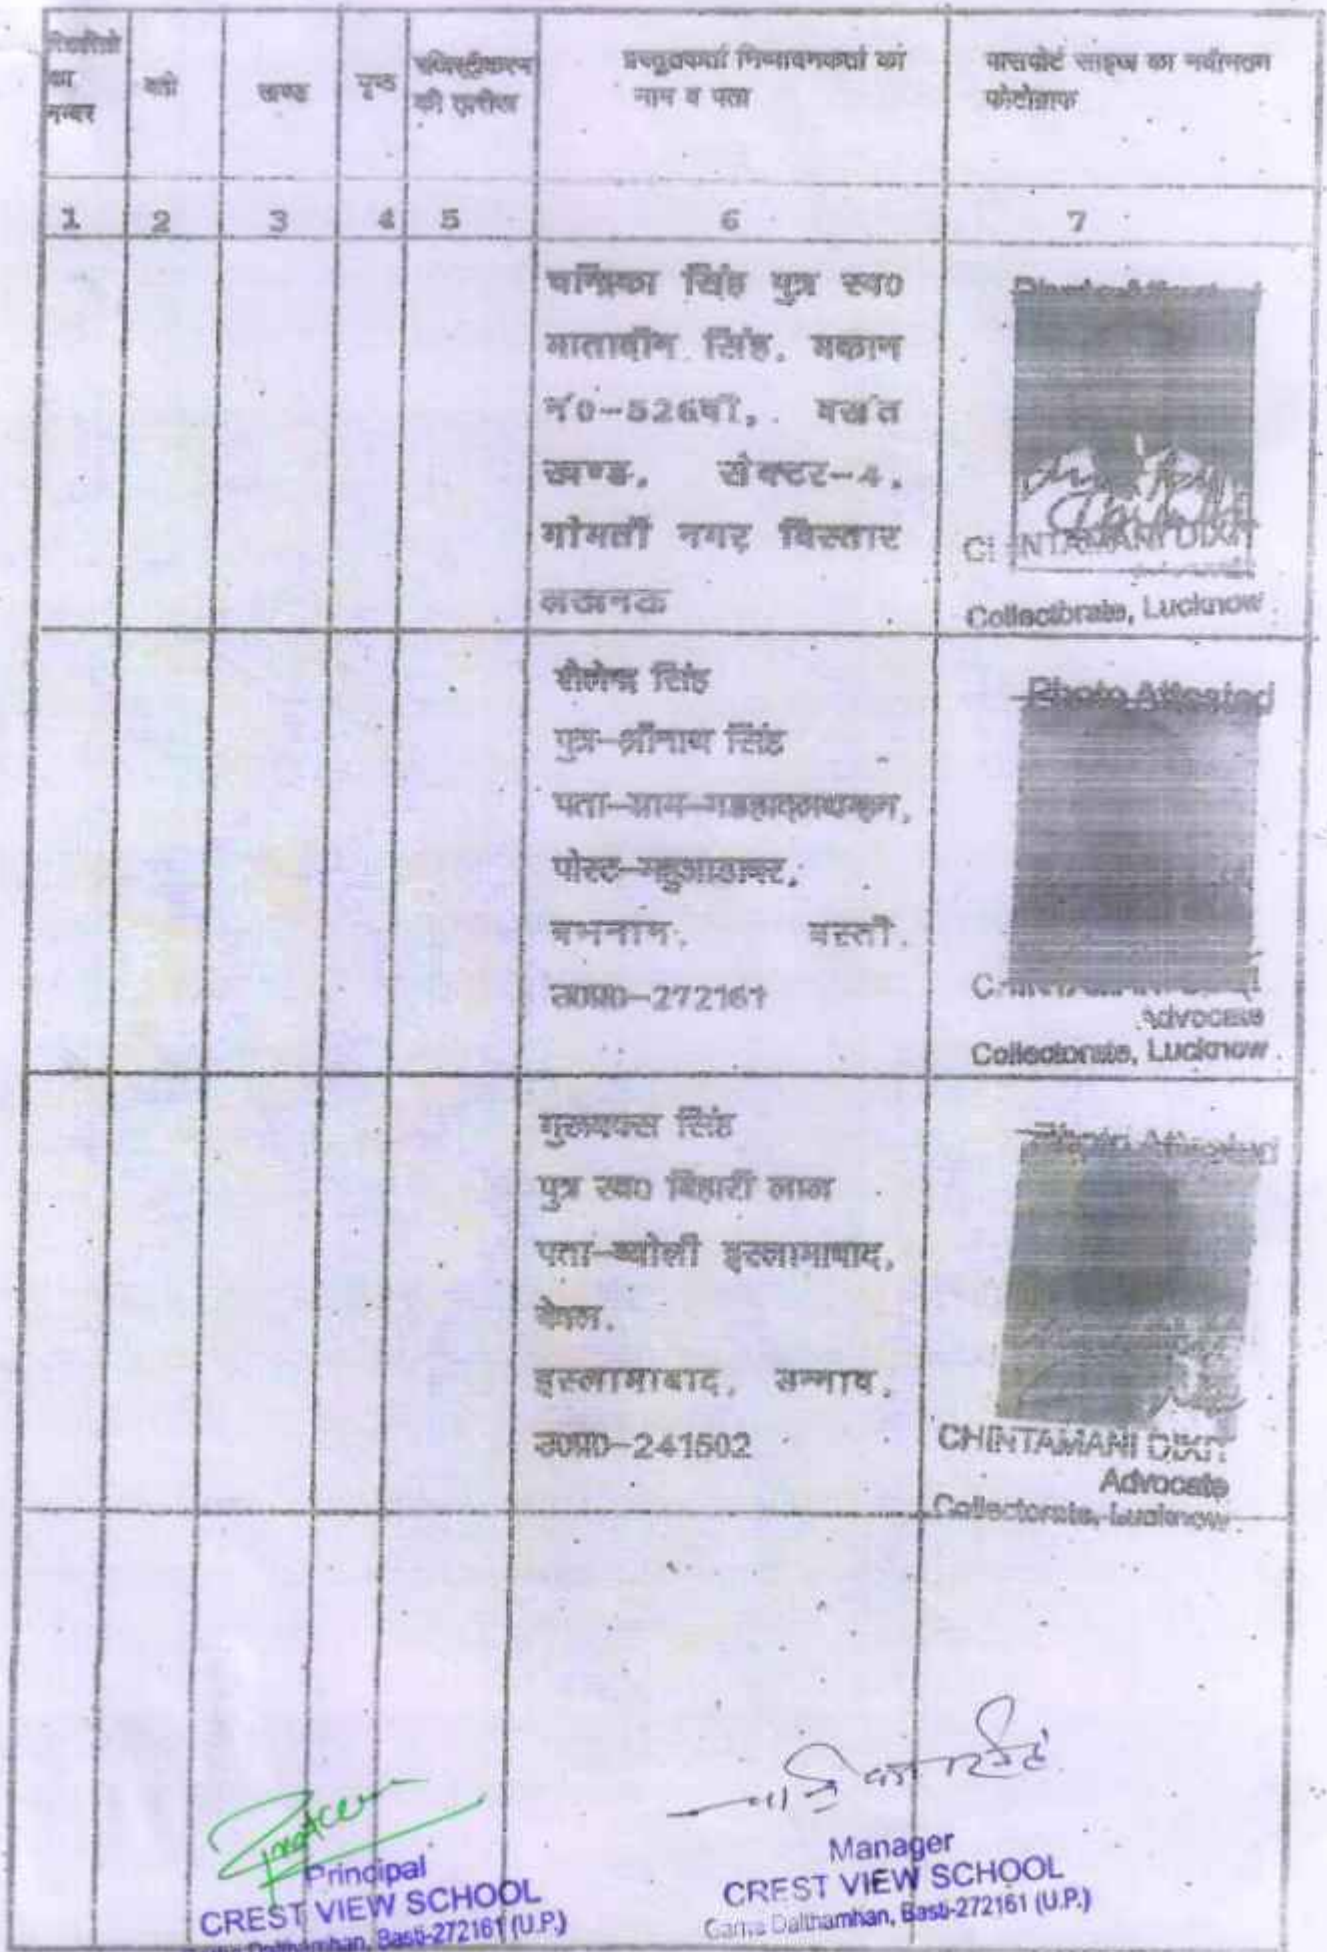 का
नम्बर
बही
खण्ड
पृष्ठ
रजिस्ट्रीकरण
की तारीख
प्रस्तुतकर्ता निष्पादनकर्ता का
नाम व पता
पासपोर्ट साइज का नवीनतम
फोटोग्राफ
1 2 3 4 5 6 7
चन्द्रिका सिंह पुत्र स्व0
मातादीन सिंह, मकान
नं0-526बी,
खण्ड, सेक्टर-4,
गोमती नगर विस्तार
लखनऊ
DIXIT
Collectorate, Lucknow
शैलेन्द्र सिंह
पुत्र-श्रीनाथ सिंह
पता-ग्राम-
पोस्ट-
बभनान, बस्ती,
उ0प्र0-272161
Photo Attested
Advocate
Collectorate, Lucknow
गुरूबक्स सिंह
पुत्र स्व0 बिहारी लाल
पता-ब्योली इस्लामाबाद,
इस्लामाबाद, उन्नाव,
उ0प्र0-241502
Attested
CHINTAMANI DIXIT
Advocate
Collectorate, Lucknow
Principal
CREST VIEW SCHOOL
Dalthamhan, Basti-272161 (U.P.)
Manager
CREST VIEW SCHOOL
Dalthamhan, Basti-272161 (U.P.)